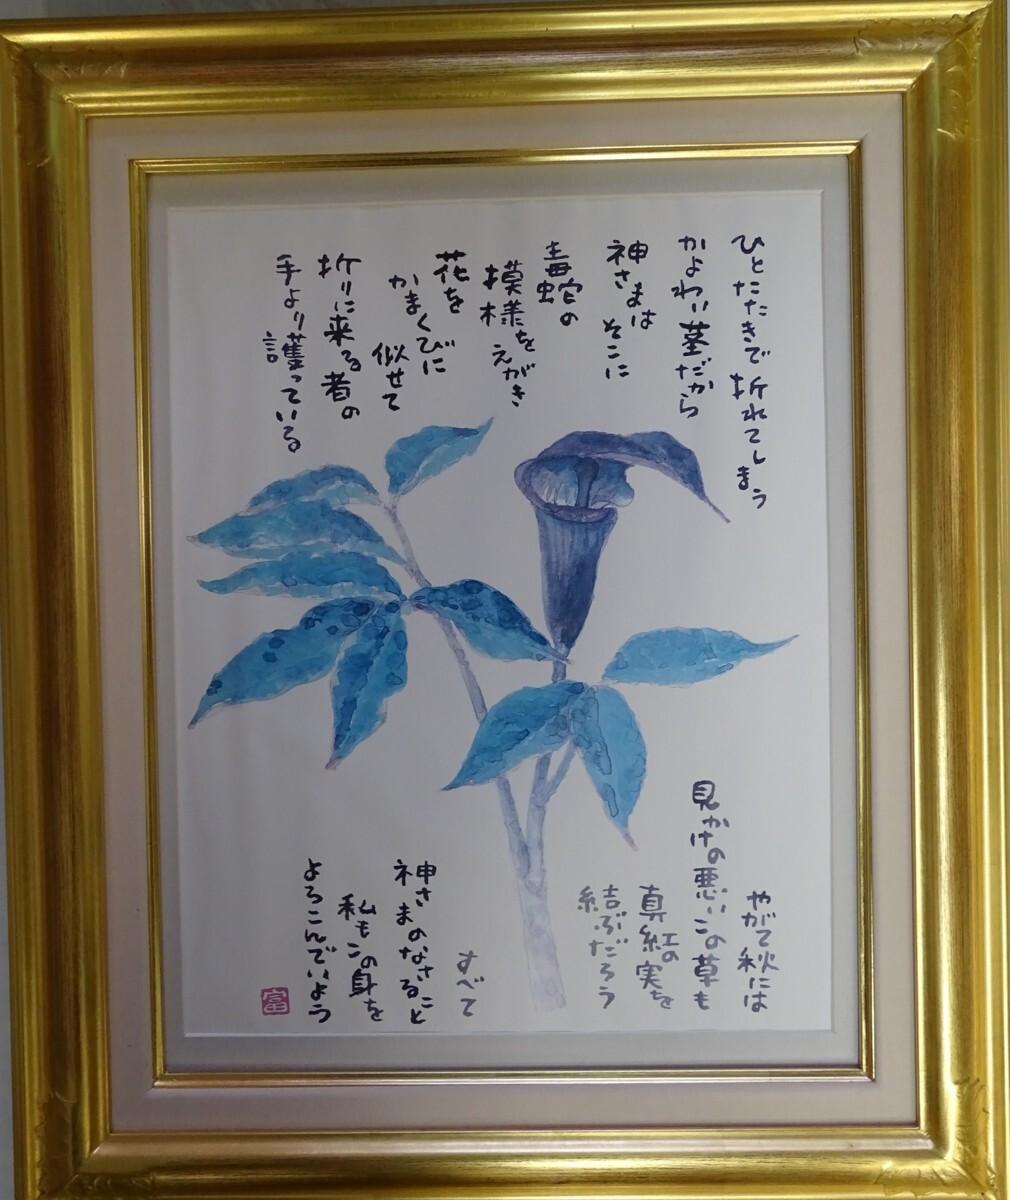 ひとたたきで折れてしまう
かよわい茎だから
神さまは そこに
毒蛇の
模様をえがき
花を
かまくびに
似せて
折りに来る者の
手より護っている
やがて秋には
見かけの悪いこの草も
真紅の実を
結ぶだろう
すべて
神さまのなさること
私もこの身を
よろこんでいよう
富